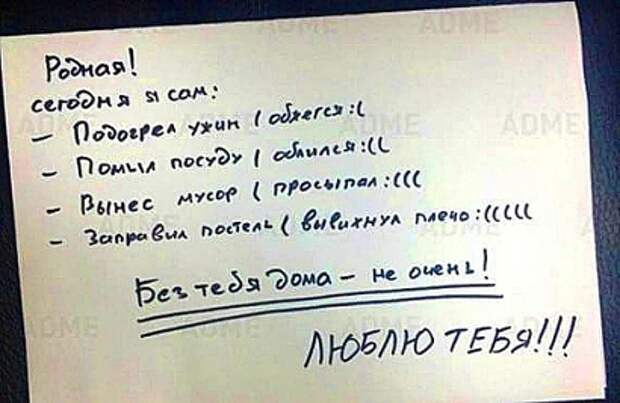 Родная!
сегодня я сам:
– Подогрел ужин ( обжегся :(
– Помыл посуду ( облился :((
– Вынес мусор ( просыпал :(((
– Заправил постель ( вывихнул плечо :(((((
Без тебя дома – не очень!
ЛЮБЛЮ ТЕБЯ!!!